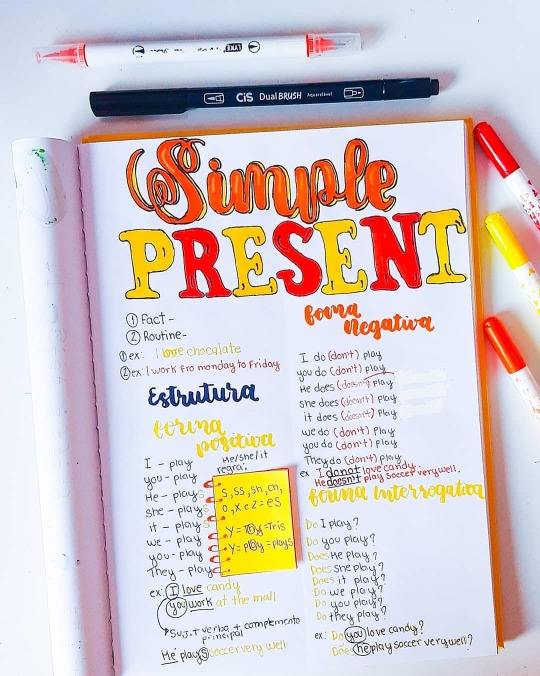 CiS Dual BRUSH Aquarelável
Simple
PRESENT
① Fact -
② Routine-
① ex: I love chocalate
② ex: I work fro monday to Friday
Estrutura
forma
positiva
I - play
you - play
He - plays
she - plays
it - plays
we - play
you - play
They - play
He/she/it
regra:
S, SS, sh, ch,
O, X e Z = es
Y = =
Y = play = plays
ex: I love candy
you work at the mall
Suj. + verbo + complemento
principal
He plays soccer very well
foma
negativa
I do (don't) play
you do (don't) play
He does (doesn't) play
she does (doesn't) play
it does (doesn't) play
we do (don't) play
you do (don't) play
They do (don't) play
ex I do not love candy.
He doesn't play soccer very well.
forma interrogativa
Do I play?
Do you play?
Does He play?
Does she play?
Does it play?
Do we play?
Do you play?
Do they play?
ex: Do you love candy?
Does he play soccer very well?